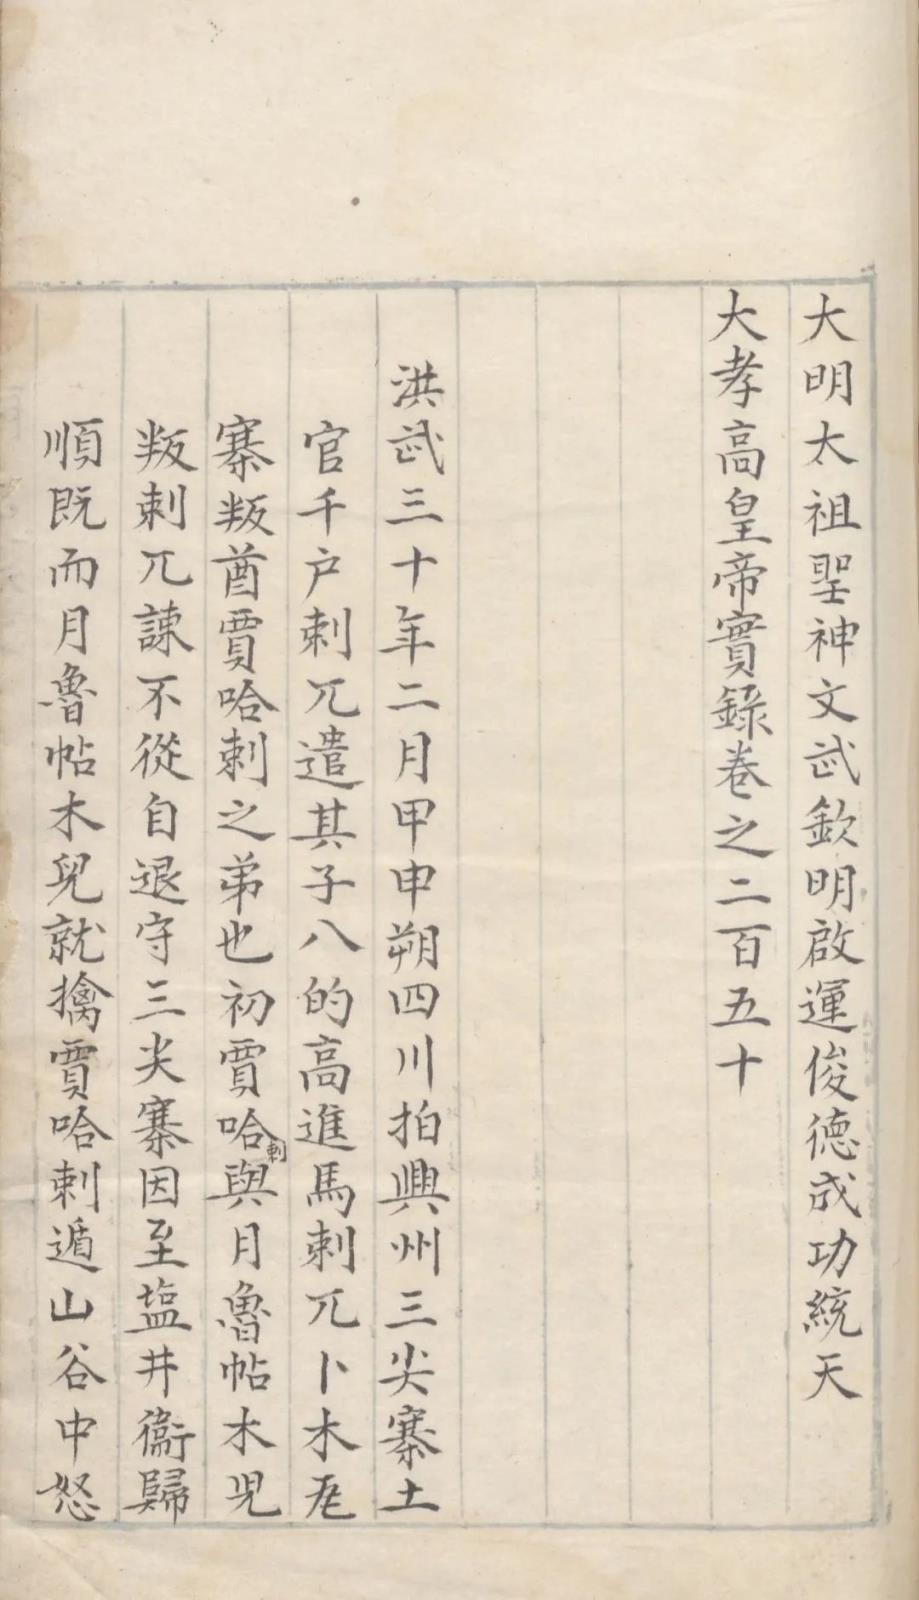 大明太祖聖神文武欽明啟運俊德成功統天
大孝高皇帝實錄卷之二百五十
洪武三十年二月甲申朔四川拍興州三尖寨土
官千户剌兀遣其子八的高進馬剌兀卜木瓦
寨叛酋賈哈剌之弟也初賈哈剌與月魯帖木兒
叛剌兀諫不從自退守三尖寨因至塩井衞歸
順既而月魯帖木兒就擒賈哈剌遁山谷中怒